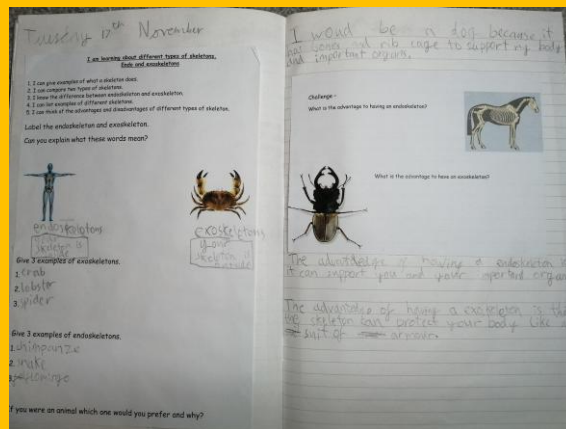 Tuesday 17th November
I am learning about different types of skeletons.
Endo and exoskeletons
1. I can give examples of what a skeleton does.
2. I can compare two types of skeletons.
3. I know the difference between endoskeleton and exoskeleton.
4. I can list examples of different skeletons.
5. I can think of the advantages and disadvantages of different types of skeleton.
Label the endoskeleton and exoskeleton.
Can you explain what these words mean?
endoskeletons
your
skeleton is
exoskeletons
your
skeleton is
outside
Give 3 examples of exoskeletons.
1. crab
2. lobster
3. spider
Give 3 examples of endoskeletons.
1.
2. snake
3. flamingo
If you were an animal which one would you prefer and why?
I would be a dog because it
has bones and rib cage to support my body
and important organs.
Challenge -
What is the advantage to having an endoskeleton?
What is the advantage to have an exoskeleton?
The advantage of having a endoskeleton is
it can support you and your inportent organ
The advantage of having a exoskeleton is the
skeleton can protect your body like a
suit of armour